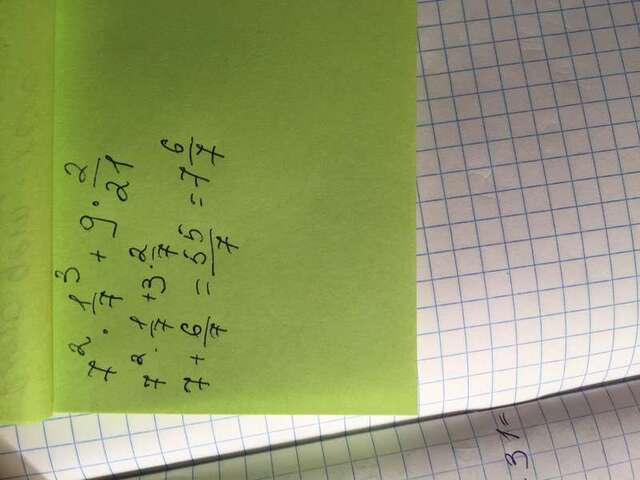 7² · 1/7³ + 9 · 2/21
7² · 1/7 + 3 · 2/7
7 + 6/7 = 55/7 = 7 6/7
. 31 =